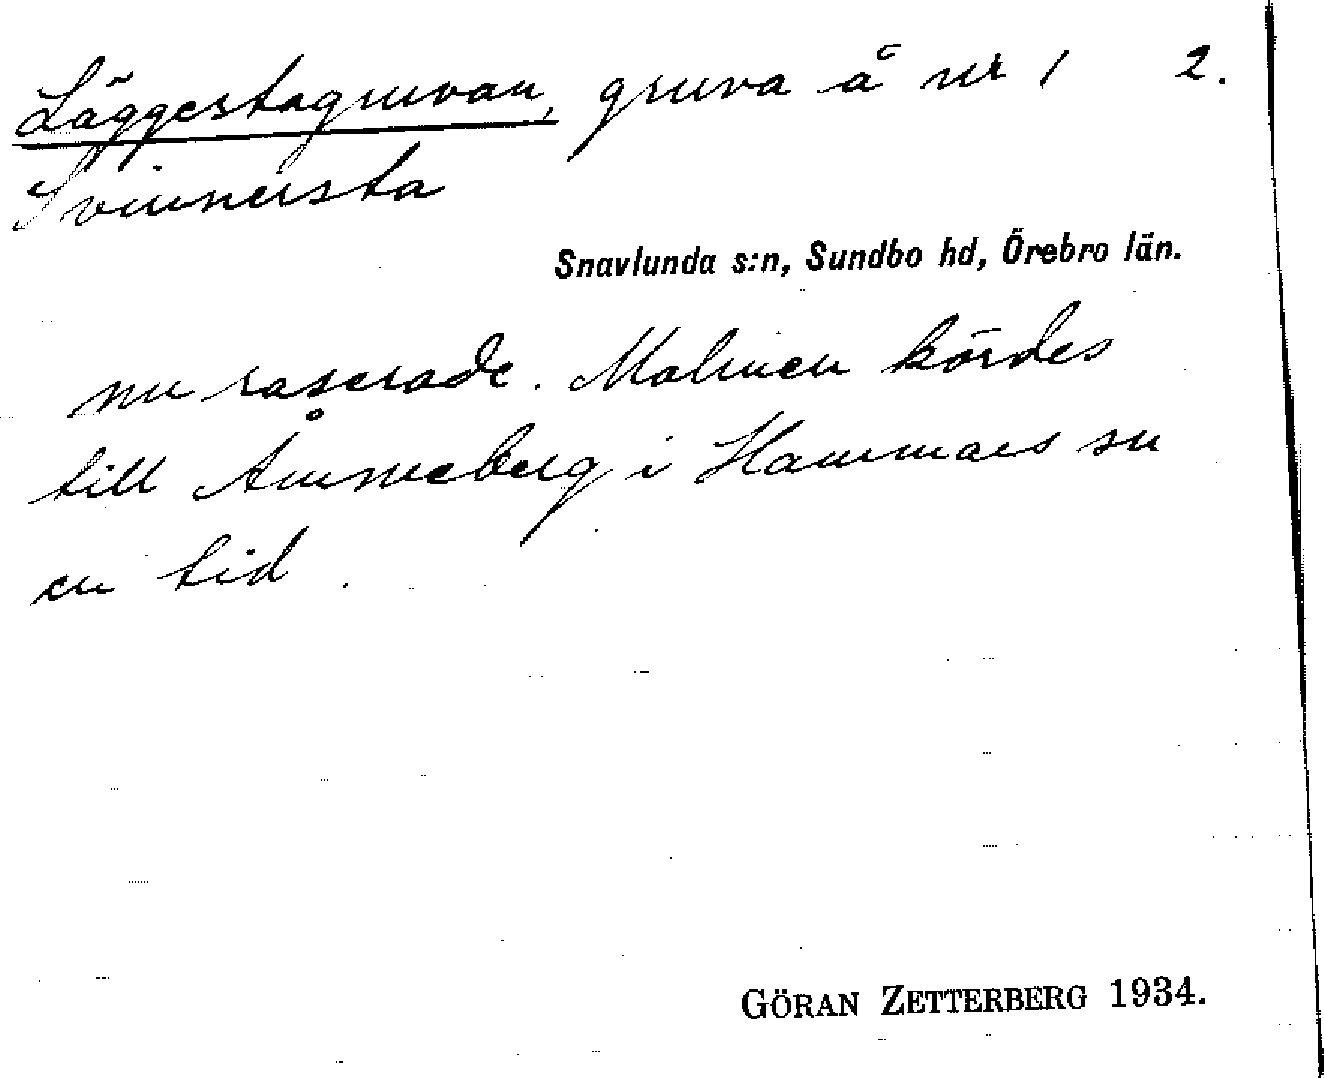 Läggestagruvan, gruva å nr 1 2.
Svinnersta
Snavlunda s:n, Sundbo hd, Örebro län.
nu raserade. Malmen kördes
till Åmmeberg i Hammars sn
en tid.
GÖRAN ZETTERBERG 1934.